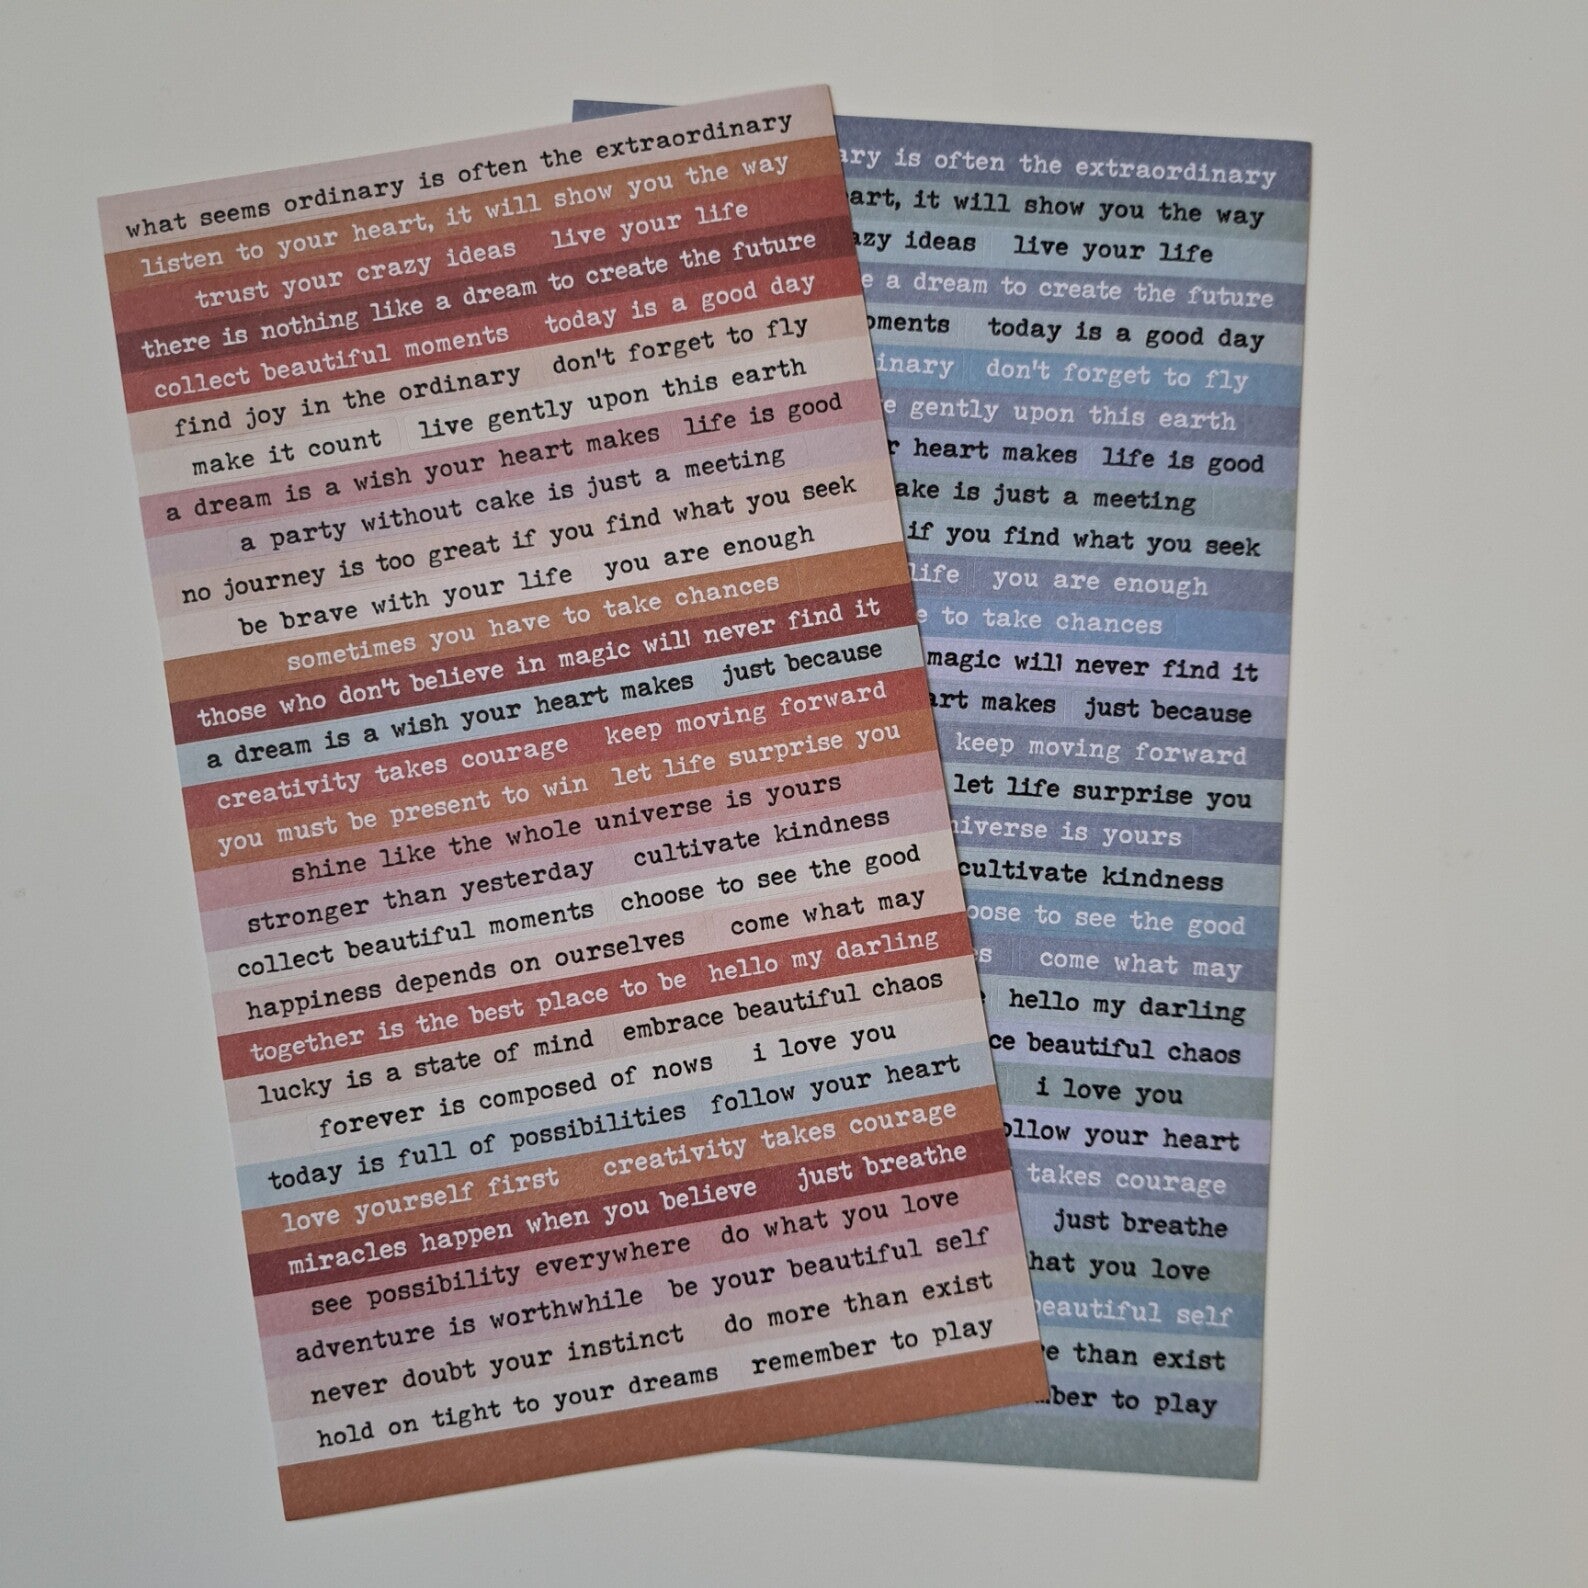 what seems ordinary is often the extraordinary
listen to your heart, it will show you the way
trust your crazy ideas live your life
there is nothing like a dream to create the future
collect beautiful moments today is a good day
find joy in the ordinary don't forget to fly
make it count live gently upon this earth
a dream is a wish your heart makes life is good
a party without cake is just a meeting
no journey is too great if you find what you seek
be brave with your life you are enough
sometimes you have to take chances
those who don't believe in magic will never find it
a dream is a wish your heart makes just because
creativity takes courage keep moving forward
you must be present to win let life surprise you
shine like the whole universe is yours
stronger than yesterday cultivate kindness
collect beautiful moments choose to see the good
happiness depends on ourselves come what may
together is the best place to be hello my darling
lucky is a state of mind embrace beautiful chaos
forever is composed of nows i love you
today is full of possibilities follow your heart
love yourself first creativity takes courage
miracles happen when you believe just breathe
see possibility everywhere do what you love
adventure is worthwhile be your beautiful self
never doubt your instinct do more than exist
hold on tight to your dreams remember to play
is often the extraordinary
it will show you the way
ideas live your life
a dream to create the future
today is a good day
don't forget to fly
gently upon this earth
heart makes life is good
is just a meeting
if you find what you seek
life you are enough
to take chances
magic will never find it
makes just because
keep moving forward
let life surprise you
is yours
cultivate kindness
to see the good
come what may
hello my darling
beautiful chaos
i love you
your heart
takes courage
just breathe
you love
beautiful self
than exist
to play